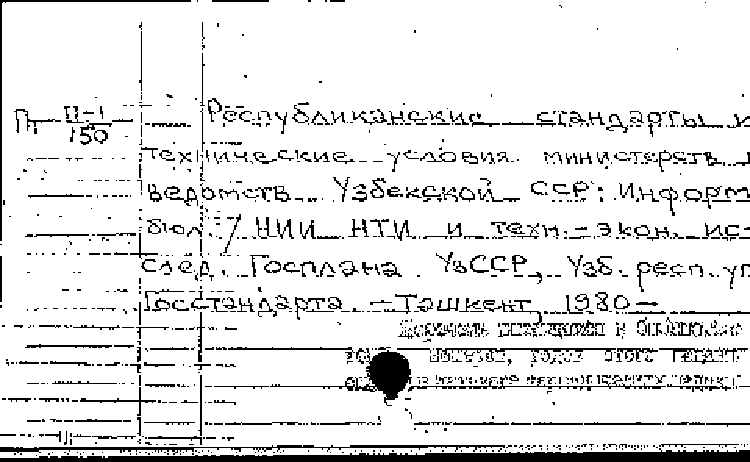 Пт П-1
150
Республиканские стандарты и
технические условия министерств
ведомств Узбекской ССР: Информ
бюл. / НИИ НТИ и техн.-экон. ис-
след. Госплана УзССР, Узб. респ. уп
Госстандарта. - Ташкент, 1980 -